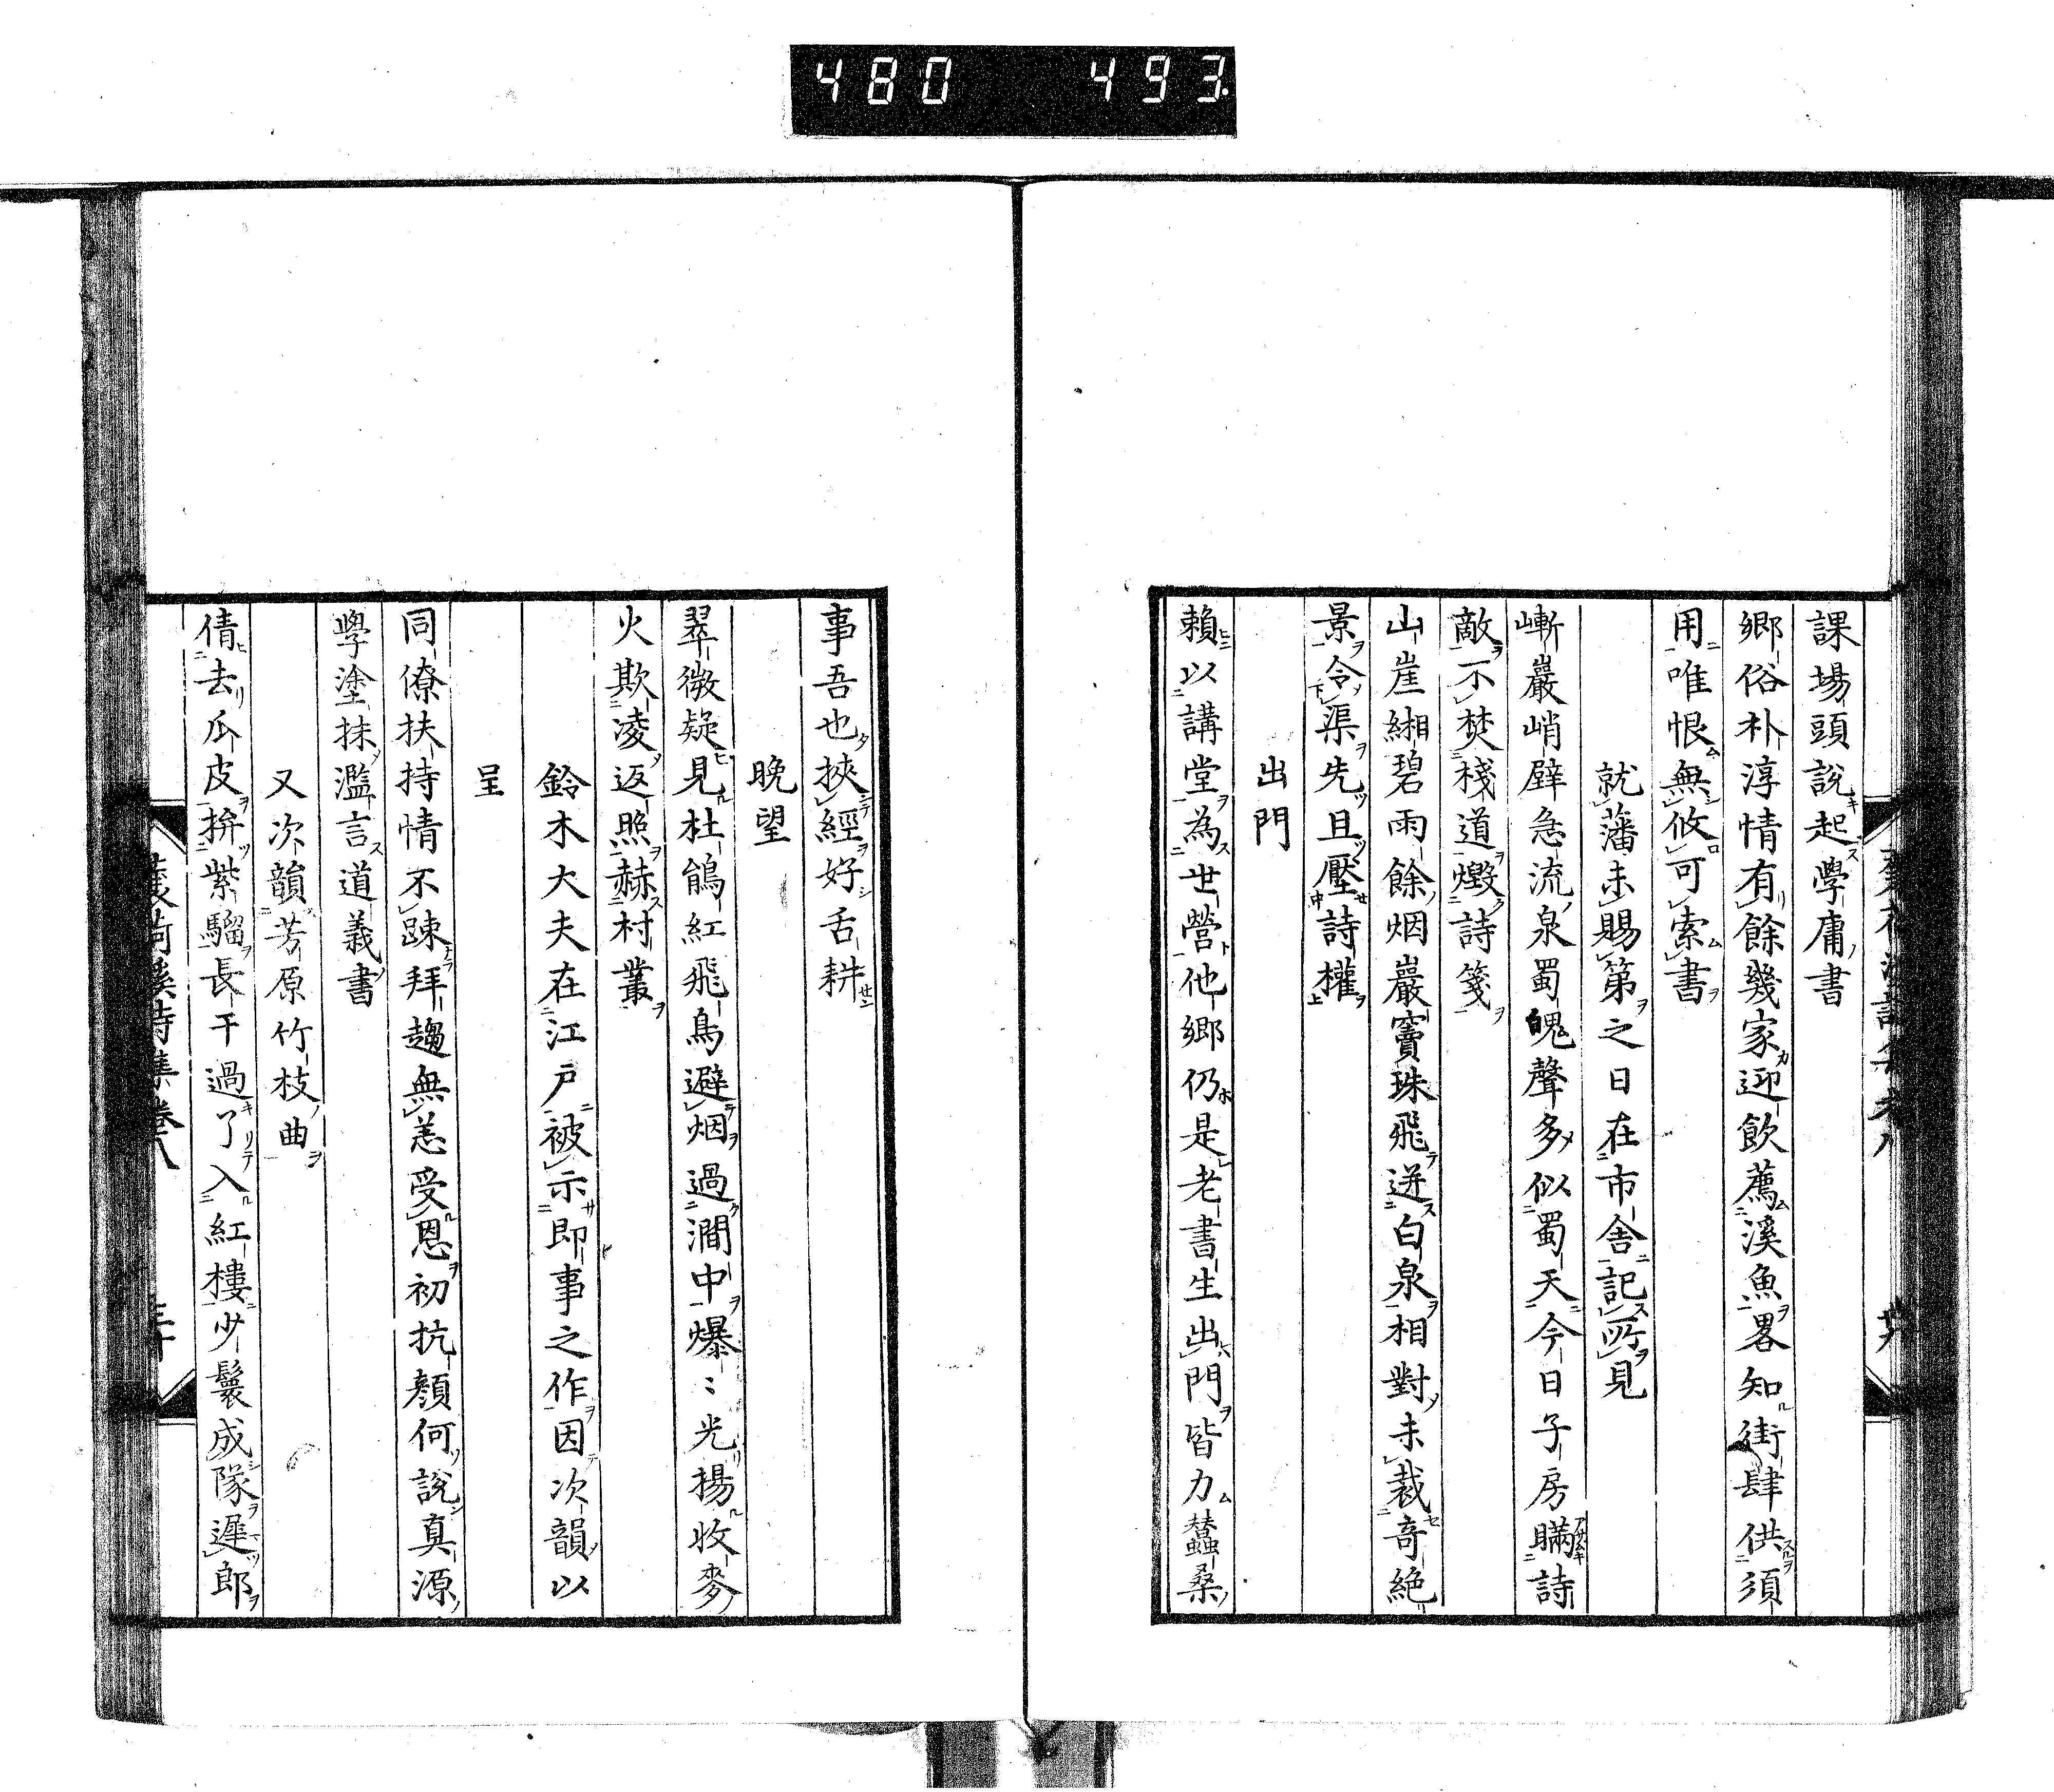 480 493
課場頭說起學庸書
鄉俗朴淳情有餘幾家迎飲薦溪魚畧知街肆供須
用唯恨無攸可索書
就藩未賜第之日在市舍記所見
嶄巖峭壁急流泉蜀魄聲多似蜀天今日子房瞞詩
敵不焚棧道燬詩箋
山崖緗碧雨餘烟巖竇珠飛迸白泉相對未裁奇絶
景令渠先且壓詩權
出門
賴以講堂為世營他鄉仍是老書生出門皆力蠶桑
事吾也挾經好舌耕
晚望
翠微疑見杜鵑紅飛鳥避烟過澗中爆〻光揚收麥
火欺凌返照赫村叢
鈴木大夫在江戸被示即事之作因次韻以
呈
同僚扶持情不踈拜趨無恙受恩初抗顏何說真源
學塗抹濫言道義書
又次韻芳原竹枝曲
倩去瓜皮拚紫騮長干過了入紅樓少鬟成隊遲郎